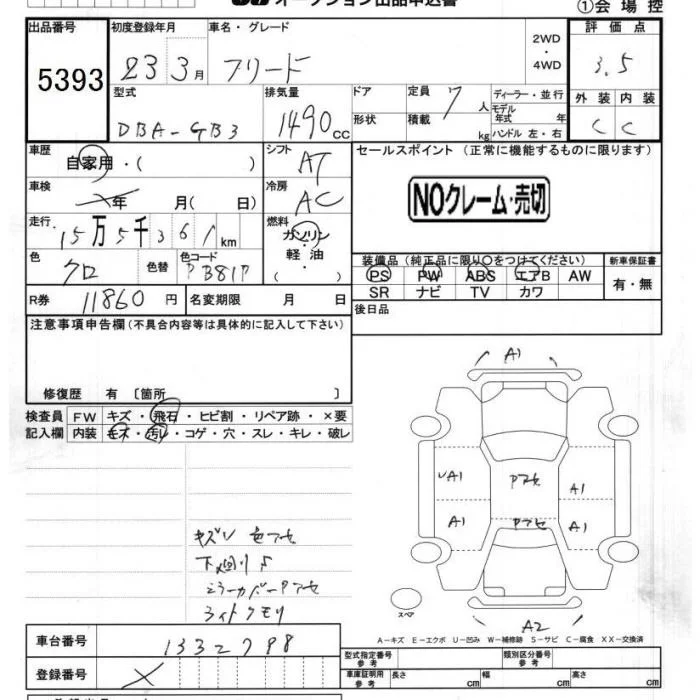 オークション出品申込書
①会場控
出品番号 初度登録年月 車名・グレード 評価点
5393 23年3月 フリード 2WD・4WD 3.5
型式 排気量 ドア 定員 7人 ディーラー・並行 外装 内装
DBA-GB3 1490cc 形状 積載 kg モデル年式 年 ハンドル 左・右 C C
車歴 自家用・( ) シフト AT セールスポイント (正常に機能するものに限ります)
車検 年 月( 日) 冷房 AC NOクレーム・売切
走行 15万5千361km 燃料 ガソリン・軽油( )
色 クロ 色替 色コード PB81P
装備品 (純正品に限り○をつけてください) 新車保証書
PS PW ABS エアB AW 有・無
SR ナビ TV カワ
R券 11860円 名変期限 月 日 後日品
注意事項申告欄(不具合内容等は具体的に記入して下さい)
修復歴 有 〔箇所 〕
検査員 FW キズ・飛石・ヒビ割・リペア跡・×要
記入欄 内装 キズ・汚レ・コゲ・穴・スレ・キレ・破レ
A1
UA1 Pアセ A1
A1 Pアセ A1
キズ 色アセ
下廻りS
ミラーカバーPアセ
ライトクモリ
スペア
A2
A-キズ E-エクボ U-凹み W-補修跡 S-サビ C-腐食 XX-交換済
車台番号 1332798
登録番号 X
型式指定番号 参考 類別区分番号 参考
車庫証明用 参考 長さ cm 幅 cm 高さ cm